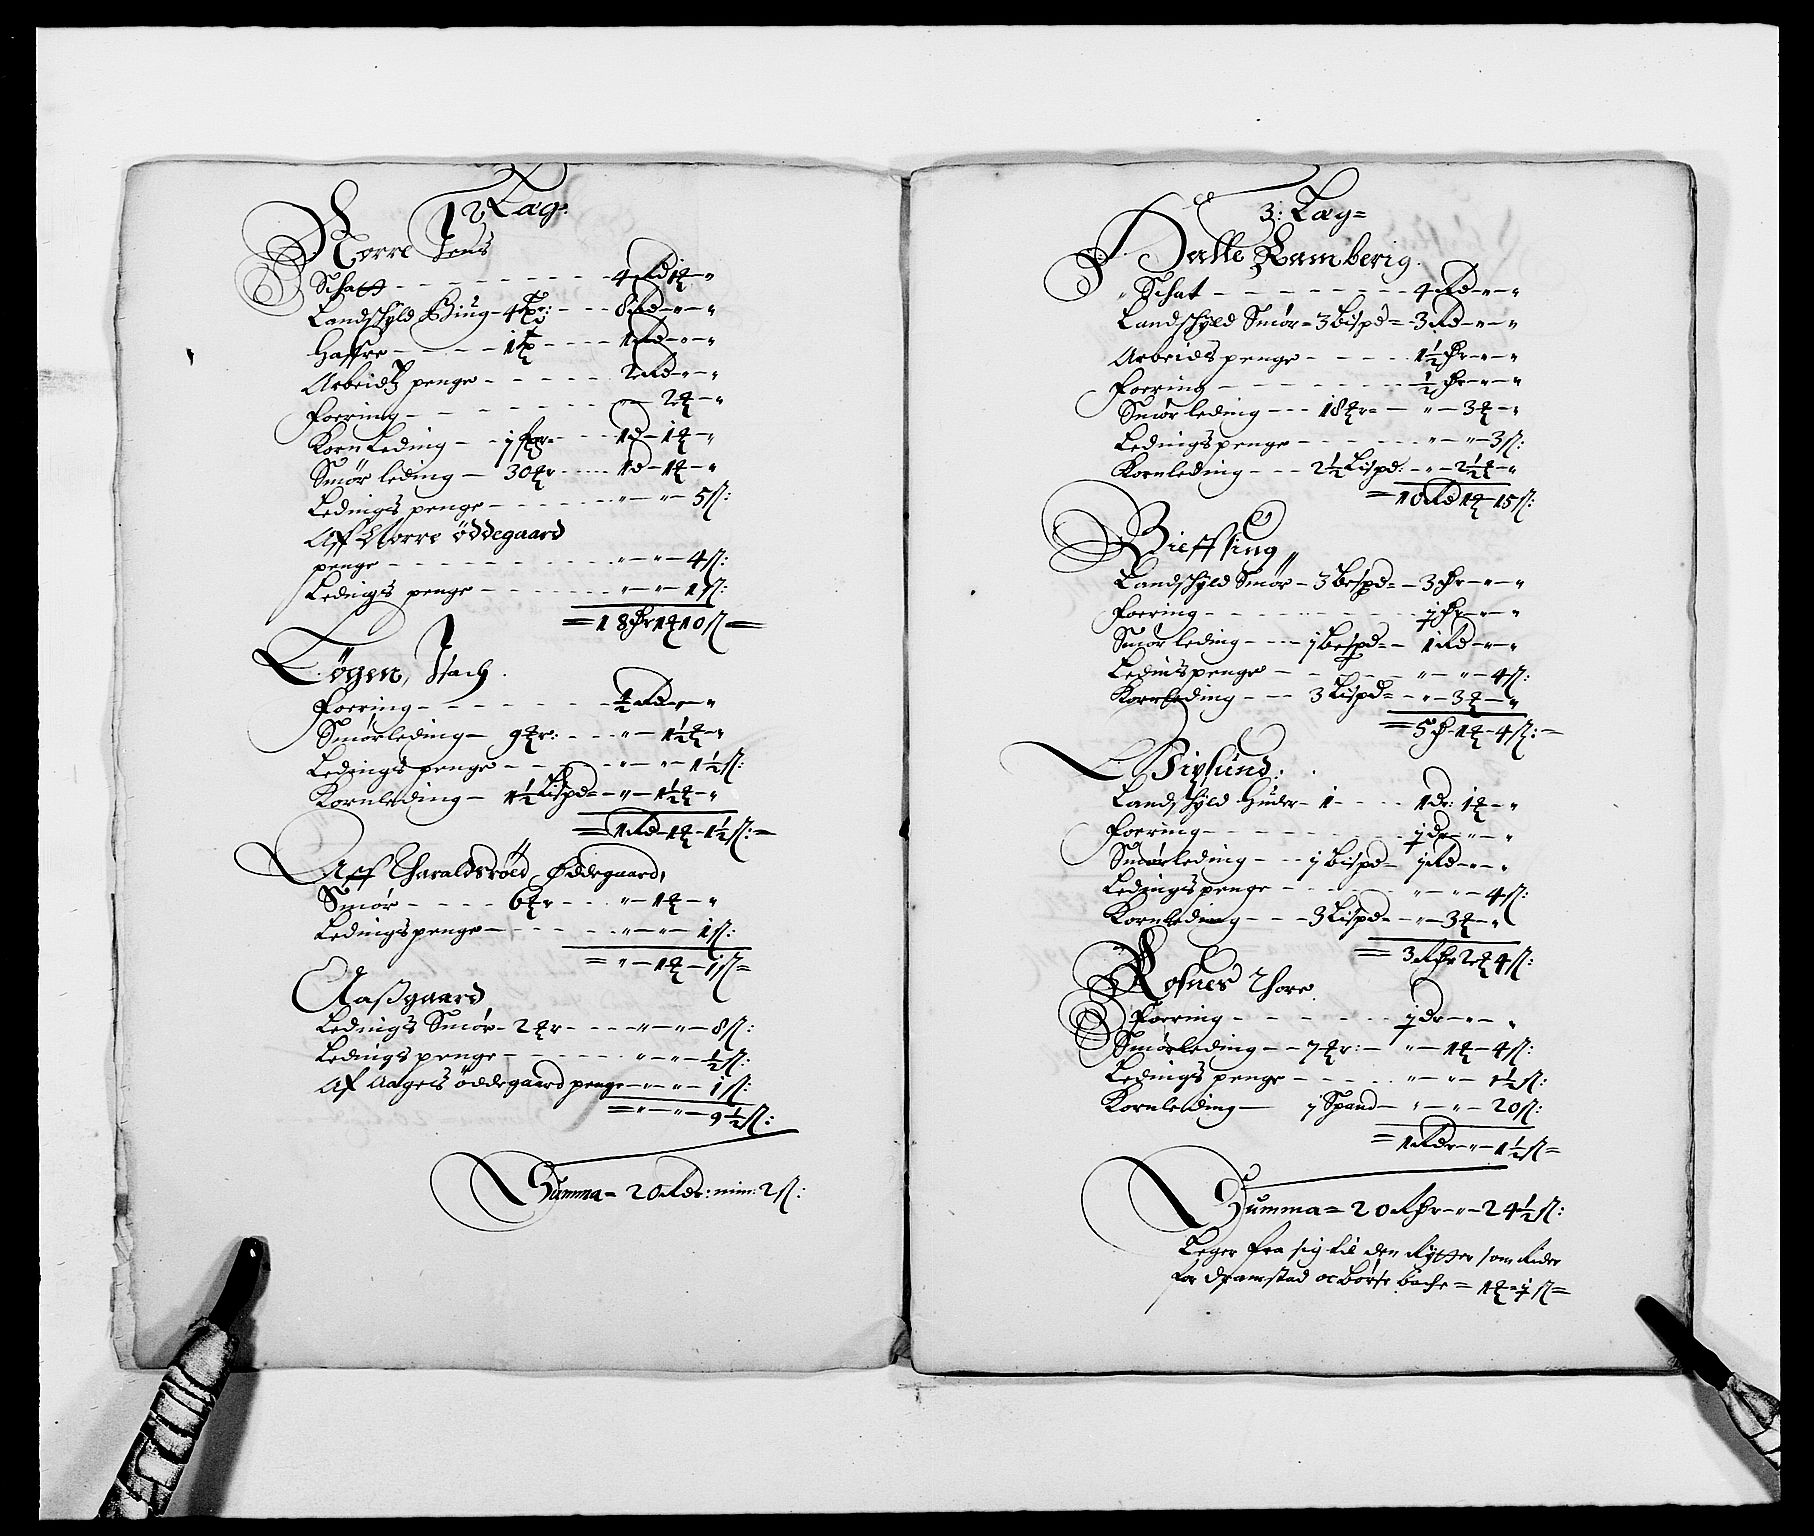 2 Lag:
Norre Jens
Schatt - - - - - - - 4 Rd 1 ℔ - "
Landschyld Biug - 4 tr: - - 8 Rd - " - "
Haffre - - - - 1 - - - - 1 Rd - " - "
Arbeidtz penge - - - - - - 2 Rd - " - "
Foering - - - - - - - - " - 2 ℔ - "
Korn Leding - - j - - - 1 d - 1 ℔ - "
Smør leding - 30 ℔r - - - 1 d - 1 ℔ - "
Ledings penge - - - - - - " - " - 5 ß:
Aff Norre øddegaard
penge - - - - - - - - " - " - 4 ß:
Ledings penge - - - - - - " - " - 1 ß:
= 18 Dr 1 ℔ 10 ß =
Løgen,
Foering - - - - - - - ½ Rd - " - "
Smørleding - 9 ℔r: - - - " - 1½ ℔ - "
Ledings penge - - - - - " - " - 1½ ß:
Kornleding - 1½ Lispd = - " - 1½ ℔ - "
= 1 Rd - 1 ℔ - 1½ ß: -
Aff Haraldsrøed Øddegaard,
Smør - - - - 6 ℔r - - - " - 1 ℔ - "
Ledingspenge - - - - - " - " - 1 ß:
= " - 1 ℔ - 1 ß =
Aaßgaard
Ledings Smør - 2 ℔r - - - " - " - 8 ß:
Ledings penge - - - - - " - " - ½ ß:
Af Aagers øddegaard penge - " - " - 1 ß:
= " - " - 9½ ß:
Summa = 20 Rdr: min: 2 ß:
3: Læg =
Halle Ramberig
" Schat - - - - - - - 4 Rd - " - "
Landschyld Smør = 3 Bispd = - 3 Rd - " - "
Arbeids penge - - - - - 1½ Dr - " - "
Foering - - - - - - - ½ Dr - " - "
Smør leding - - - 18 ℔r = - " - 3 ℔ - "
Ledingspenge - - - - - - " - " - 3 ß:
Kornleding - - - 2½ Lispd: - " - 2½ ℔ - "
= 10 Rd 1 ℔ 15 ß:
Bieffting
Landschyld Smør - 3 Bespd = - 3 Dr - " - "
Foering - - - - - - - j Dr - " - "
Smør leding - - - j Bespd = - 1 Rd - " - "
Ledinspenge - - - - - " - " - 4 ß:
Kornleding - - - 3 Lispd = - " - 3 ℔ - "
= 5 D - 1 ℔ - 4 ß: -
Siglund:
Landschyld Huder - 1 - - - - 1 dr: 1 ℔ - "
Foering - - - - - - - j dr - " - "
Smørleding - - - j Bispd = j Rd - " - "
Ledingspenge - - - - - - " - " - 4 ß:
Kornleding - - - 3 Lispd = - " - 3 ℔ - "
= 3 RDr 2 ℔ 4 ß:
Rosnes Thore
Foering - - - - - - - j dr - " - "
Smørleding - - 7 ℔r: - " - 1 ℔ - 4 ß:
Ledings penge - - - - - " - " - 1½ ß:
Kornleding - j Spand - " - " - 20 ß:
= 1 Rdr - " - 1½ ß =
Summa = 20 RDr - " - 24½ ß:
Leger fra sig til den Rytter som Rider
for Dramstad oc Børse bache = 1 ℔ - j ß =